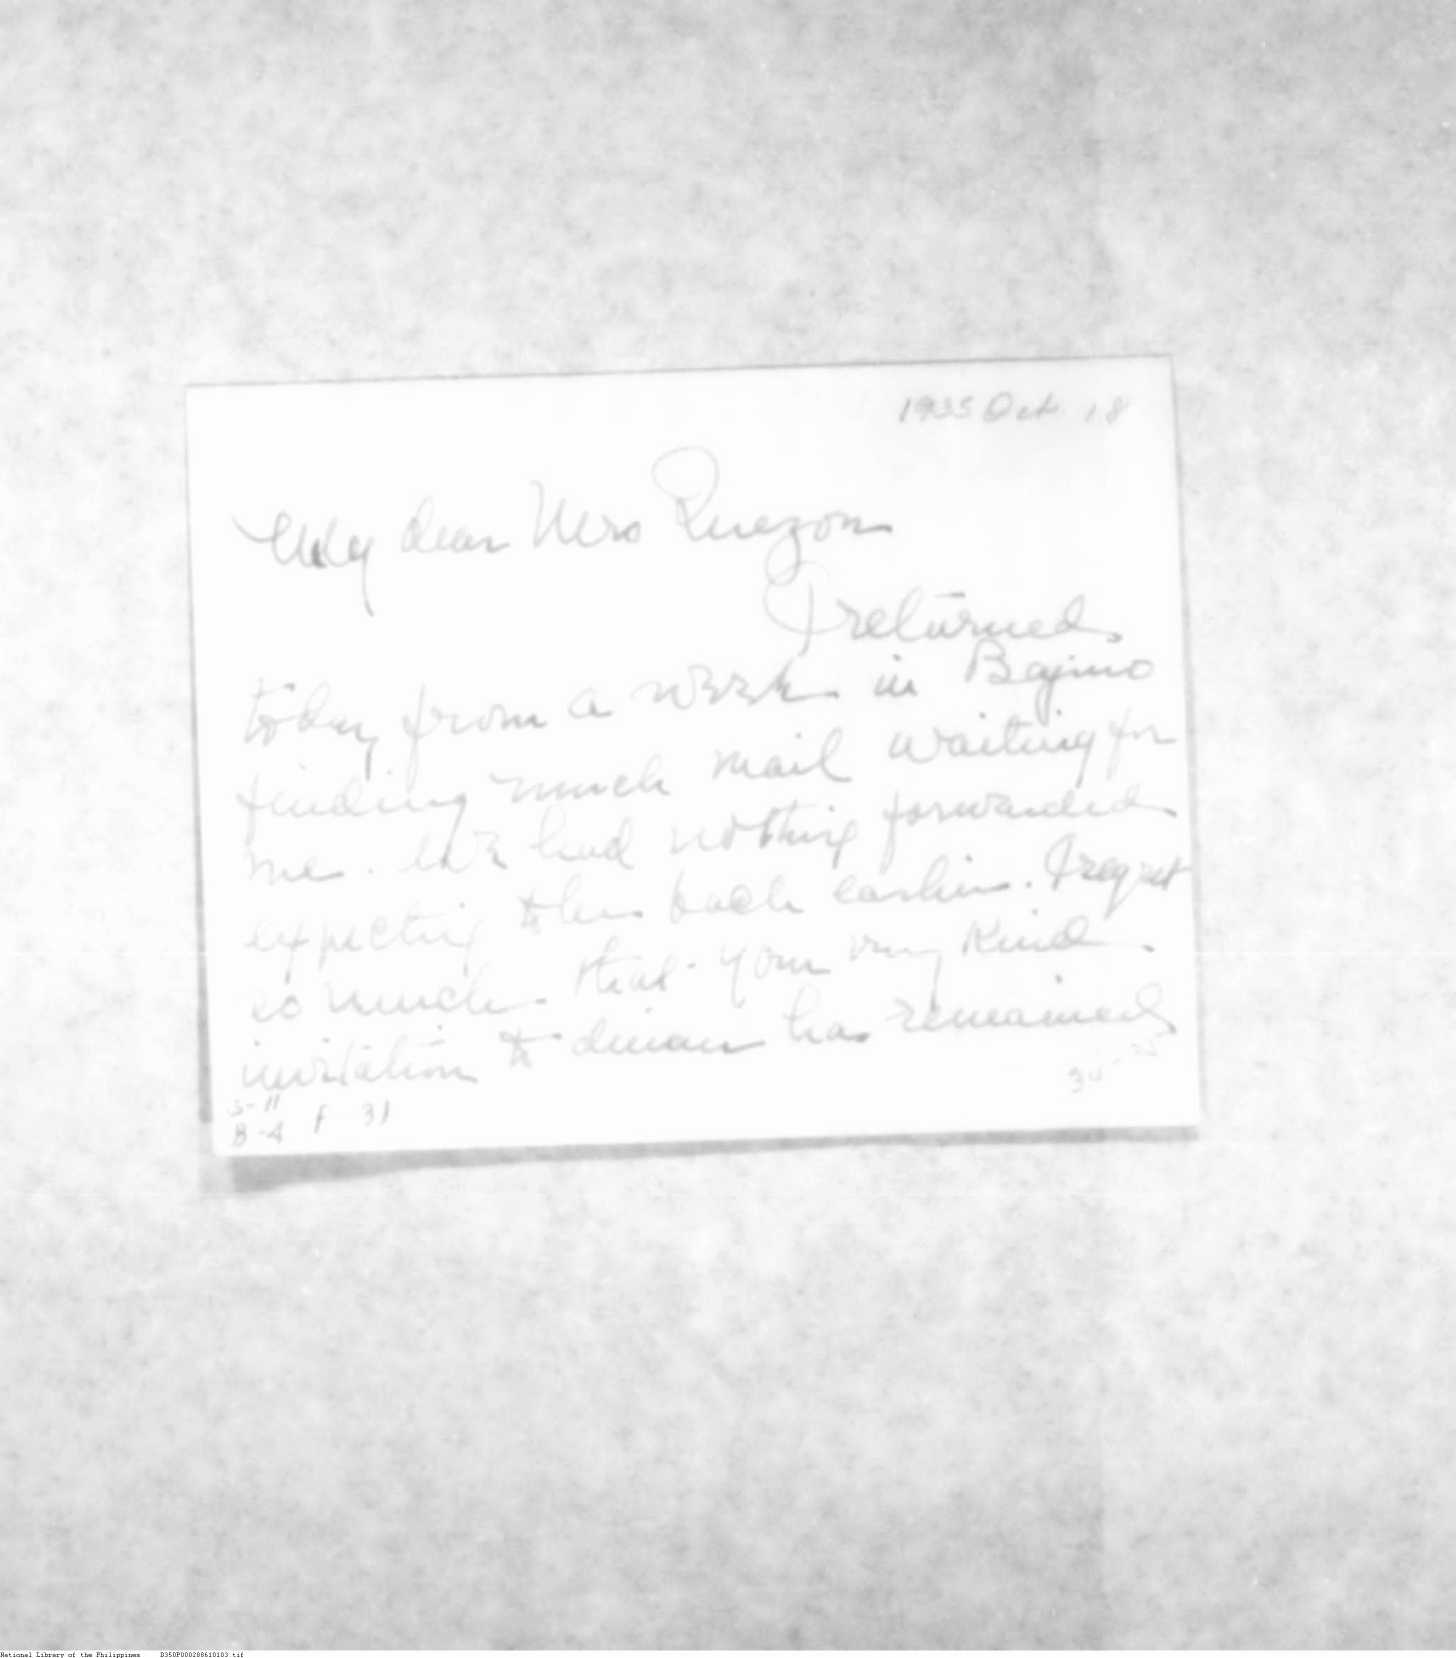 1935 Oct. 18
My dear Mrs Quezon
I returned
today from a week in Baguio
finding much mail waiting for
me. We had nothing forwarded
expecting to be back earlier. I regret
so much that your very kind
invitation to dinner has remained
S-11
B-4 F 31
National Library of the Philippines D350P000288610103.tif